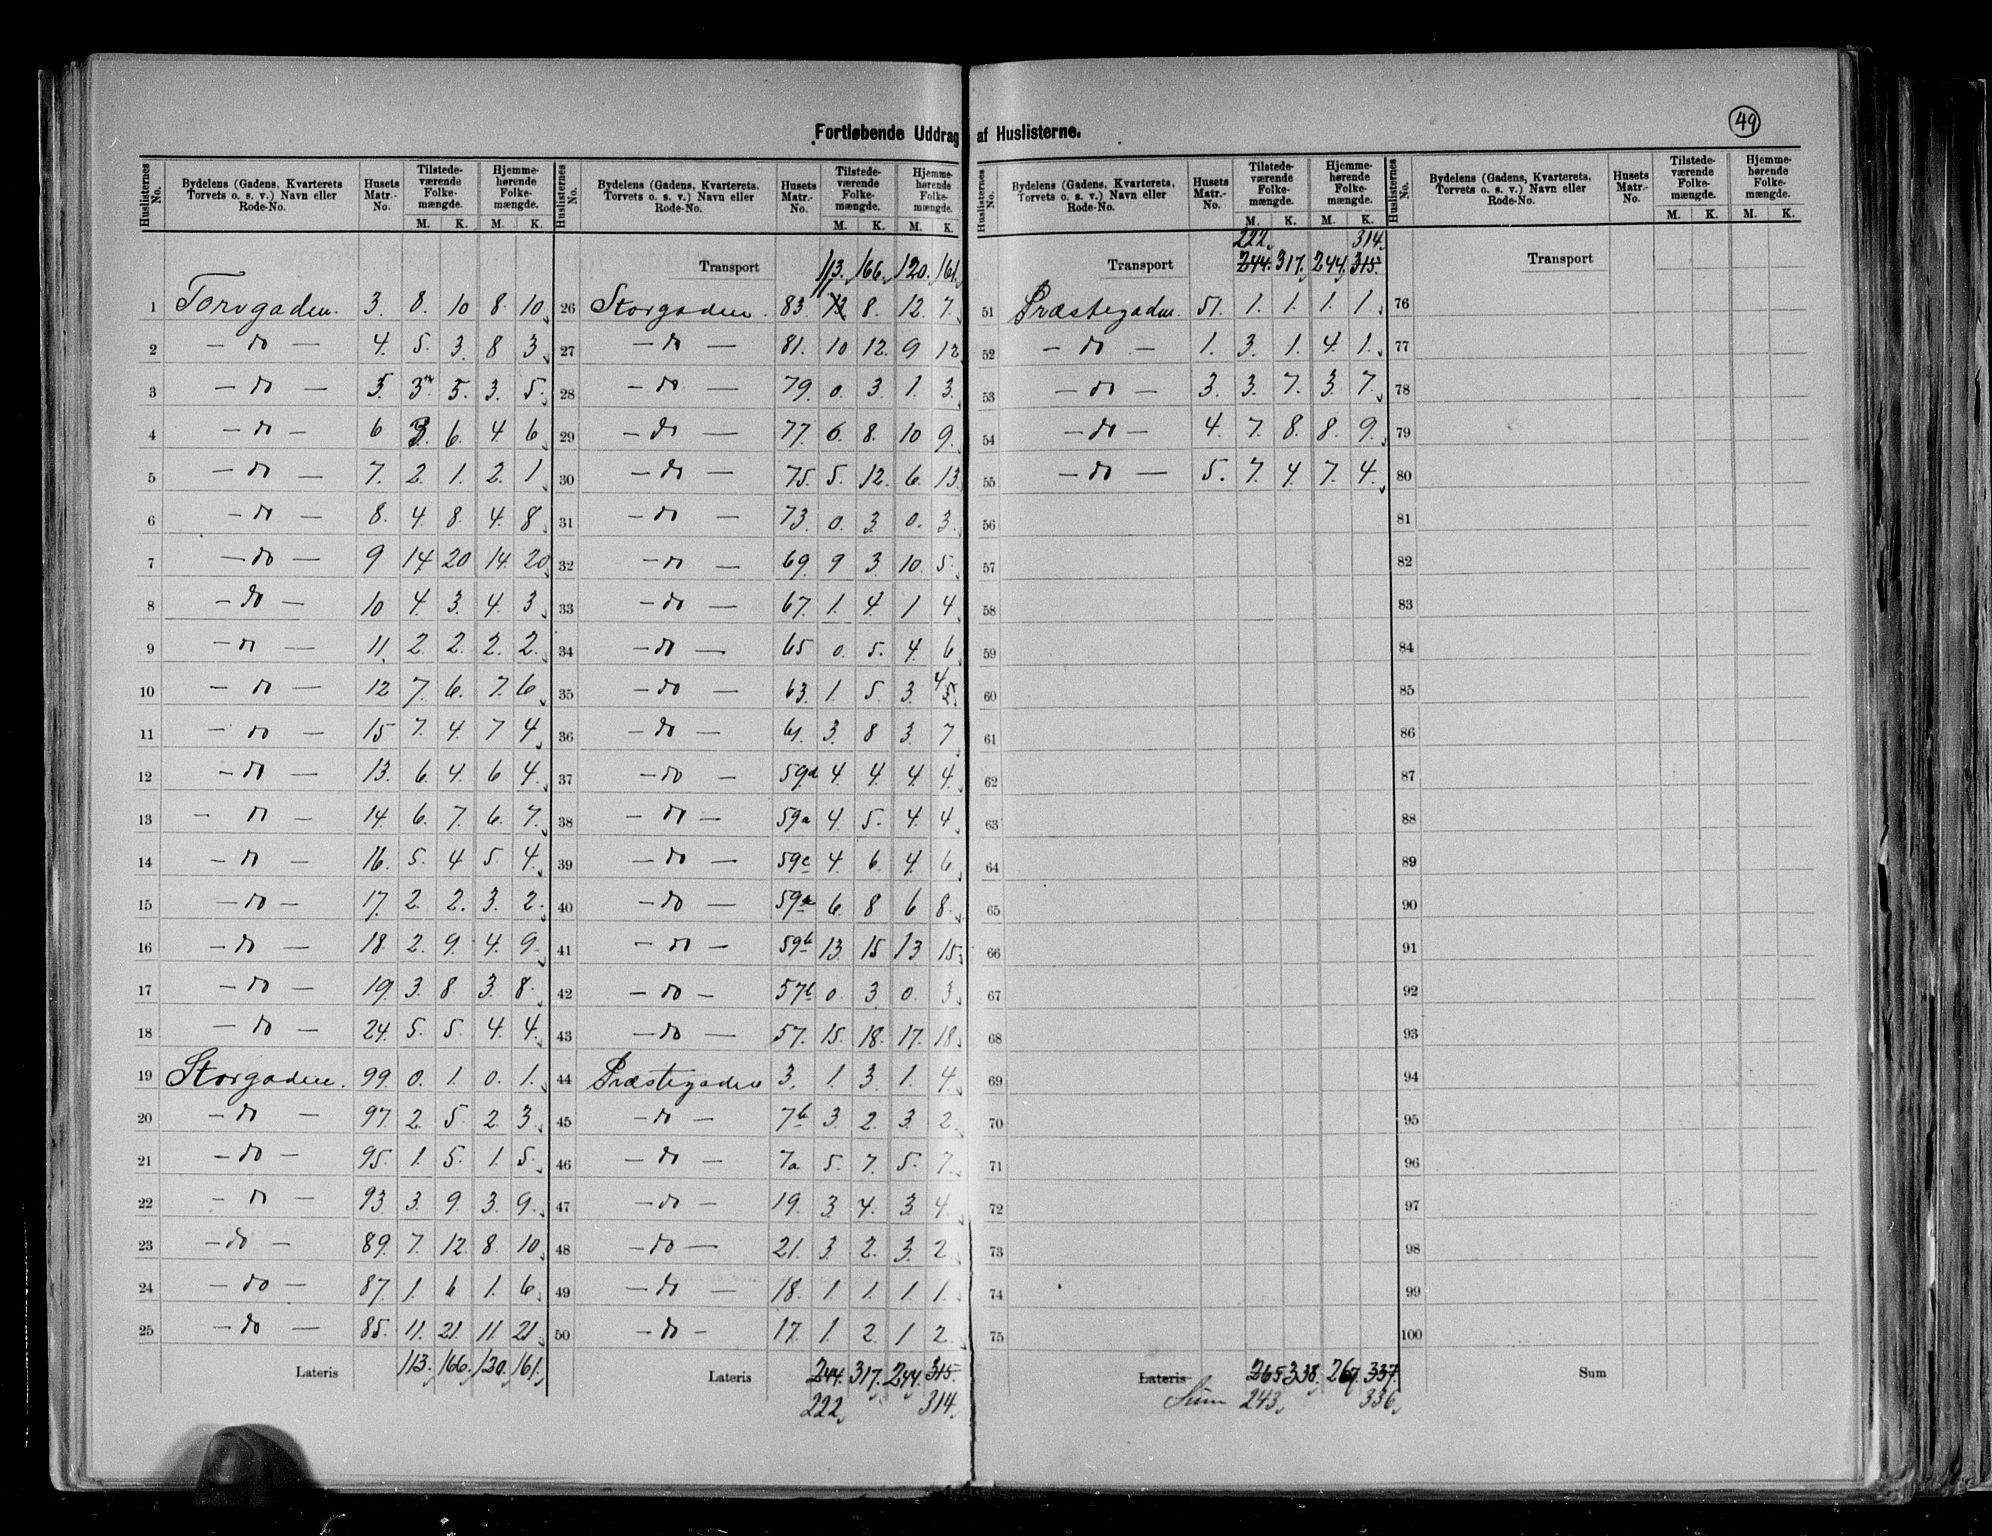 Fortløbende Uddrag af Huslisterne.
49
Huslisternes No. Bydelens (Gadens, Kvarterets, Torvets o. s. v.) Navn eller Rode-No. Husets Matr.-No. Tilstedeværende Folkemængde. M. K. Hjemmehørende Folkemængde. M. K.
1 Torvgaden. 3. 8. 10 8. 10
2 — do — 4. 5. 3. 8 3
3 — do — 5. 3. 5. 3. 5.
4 — do — 6 3. 6. 4 6
5 — do — 7. 2. 1. 2. 1
6 — do — 8. 4. 8. 4. 8
7 — do — 9 14 20 14. 20
8 — do — 10 4. 3. 4. 3
9 — do — 11. 2. 2. 2. 2.
10 — do — 12 7. 6. 7. 6
11 — do — 15 7. 4. 7 4
12 — do — 13. 6. 4. 6 4.
13 — do — 14. 6. 7. 6. 7.
14 — do — 16. 5. 4 5. 4.
15 — do — 17. 2. 2. 3. 2.
16 — do — 18. 2. 9. 4. 9.
17 — do — 19. 3. 8. 3. 8.
18 — do — 24. 5. 5. 4. 4.
19 Storgaden. 99. 0. 1. 0. 1.
20 — do — 97. 2. 5. 2. 3.
21 — do — 95. 1. 5. 1. 5.
22 — do — 93. 3. 9. 3. 9.
23 — do — 89. 7. 12. 8. 10
24 — do — 87. 1. 6 1. 6
25 — do — 85. 11. 21. 11. 21
Lateris 113. 166. 120. 161.
Huslisternes No. Bydelens (Gadens, Kvarterets, Torvets o. s. v.) Navn eller Rode-No. Husets Matr.-No. Tilstedeværende Folkemængde. M. K. Hjemmehørende Folkemængde. M. K.
Transport 113. 166. 120. 161.
26 Storgaden. 83 11 13 8. 12. 7.
27 — do — 81. 10 12. 9 12.
28 — do — 79. 0. 3 1. 3.
29 — do — 77. 6. 8. 10 9.
30 — do — 75. 5. 12. 6. 13.
31 — do — 73. 0. 3 0. 3.
32 — do — 69. 9 3. 10. 5.
33 — do — 67. 1. 4. 1 4
34 — do — 65 0. 5. 4. 6
35 — do — 63. 1. 5 3. 4 5.
36 — do — 61. 3. 8 3. 7
37 — do — 59d 4. 4. 4. 4.
38 — do — 59a 4. 5. 4. 4
39 — do — 59c 4 6. 4. 6
40 — do — 59a 6. 8 6 8.
41 — do — 59b 13. 15 13 15
42 — do — 57b 0. 3 0. 3
43 — do — 57. 15. 18. 17. 18
44 Præstegaden 3. 1. 3. 1. 4.
45 — do — 7b 3. 2. 3. 2.
46 — do — 7a 5. 7. 5. 7.
47 — do — 19. 3. 4. 3. 4.
48 — do — 21. 3. 2. 3. 2.
49 — do — 18. 1. 1. 1. 1.
50 — do — 17. 1. 2. 1 2.
Lateris 244. 317. 244. 315.
222 314
Huslisternes No. Bydelens (Gadens, Kvarterets, Torvets o. s. v.) Navn eller Rode-No. Husets Matr.-No. Tilstedeværende Folkemængde. M. K. Hjemmehørende Folkemængde. M. K.
222 314
Transport 244. 317. 244. 315.
51 Præstegaden. 51. 1. 1. 1. 1.
52 — do — 1. 3. 1. 4. 1.
53 — do — 3. 3. 7. 3. 7.
54 — do — 4. 7. 8. 8. 9.
55 — do — 5. 7. 4. 7. 4.
56
57
58
59
60
61
62
63
64
65
66
67
68
69
70
71
72
73
74
75
Lateris 265 338. 267. 337.
Sum 243 336
Huslisternes No. Bydelens (Gadens, Kvarterets, Torvets o. s. v.) Navn eller Rode-No. Husets Matr.-No. Tilstedeværende Folkemængde. M. K. Hjemmehørende Folkemængde. M. K.
Transport
76
77
78
79
80
81
82
83
84
85
86
87
88
89
90
91
92
93
94
95
96
97
98
99
100
Sum